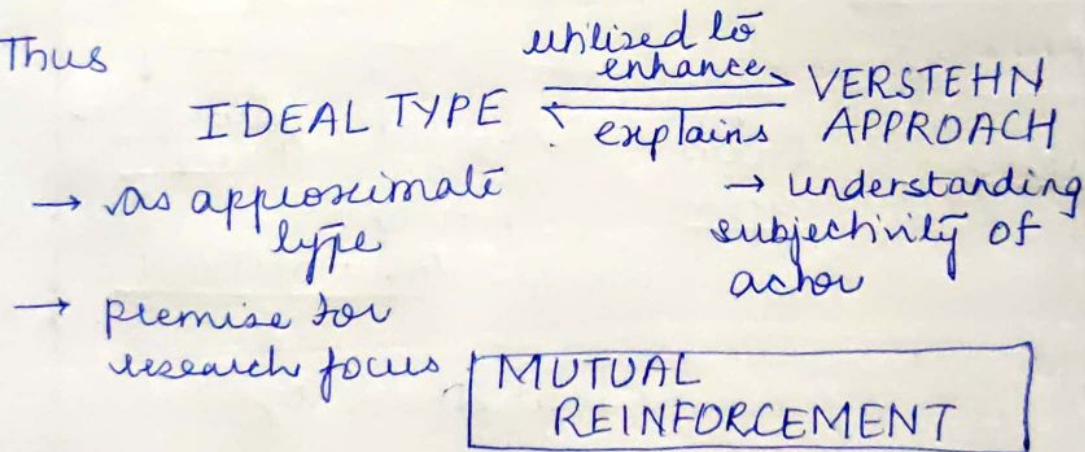 Thus
utilized to
enhance
IDEAL TYPE
explains
VERSTEHN
APPROACH
→ as approximate
type
→ premise for
research focus
→ understanding
subjectivity of
actor
MUTUAL
REINFORCEMENT